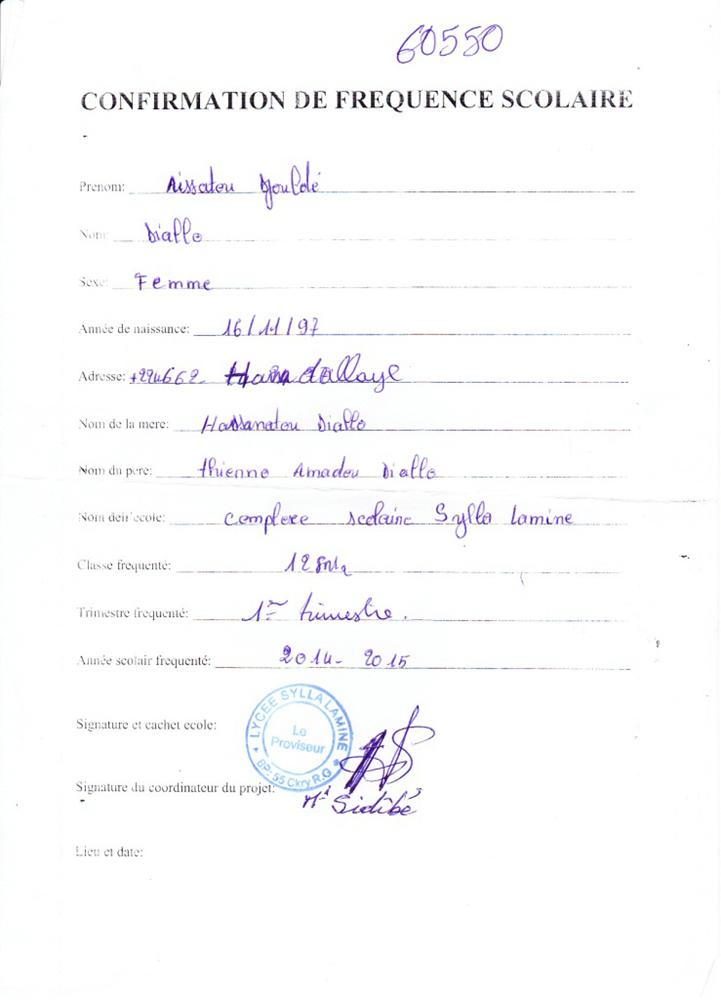 60550
CONFIRMATION DE FREQUENCE SCOLAIRE
Prenom: Aissatou Djouldé
Nom: Diallo
Sexe: Femme
Année de naissance: 16/11/97
Adresse: +224662- Hamdallaye
Nom de la mere: Hassanatou Diallo
Nom du pere: thienno Amadou Diallo
Nom deìr ecole: complexe scolaire Sylla Lamine
Classe frequenté: 12
Trimestre frequenté: 1er trimestre.
Année scolair frequenté: 2014- 2015
Signature et cachet ecole:
LYCEE SYLLA LAMINE
Le
Proviseur
BP: 55 Ckry R.G
Signature du coordinateur du projet:
Mr Sidibé
Lieu et date: